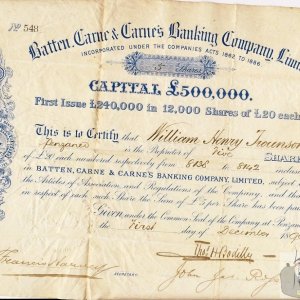 No 548
Batten, Carne & Carne's Banking Company, Limi
INCORPORATED UNDER THE COMPANIES ACTS 1862 TO 1886
5 Shares
CAPITAL £500,000.
First Issue £240,000 in 12,000 Shares of £20 each
This is to Certify that William Henry
Penzance is the Proprietor of Five SHAR
of £20 each numbered respectively from 8138 to 8142 inclusive
in BATTEN, CARNE & CARNE'S BANKING COMPANY, LIMITED, subject to
the Articles of Association, and Regulations of the Company, and that
in respect of each such Share the Sum of £5 per Share has been
Given under the Common Seal of the Company at Penzan
the First day of December 18
Thos. H. Bodilly
SECRETARY.
John Jas